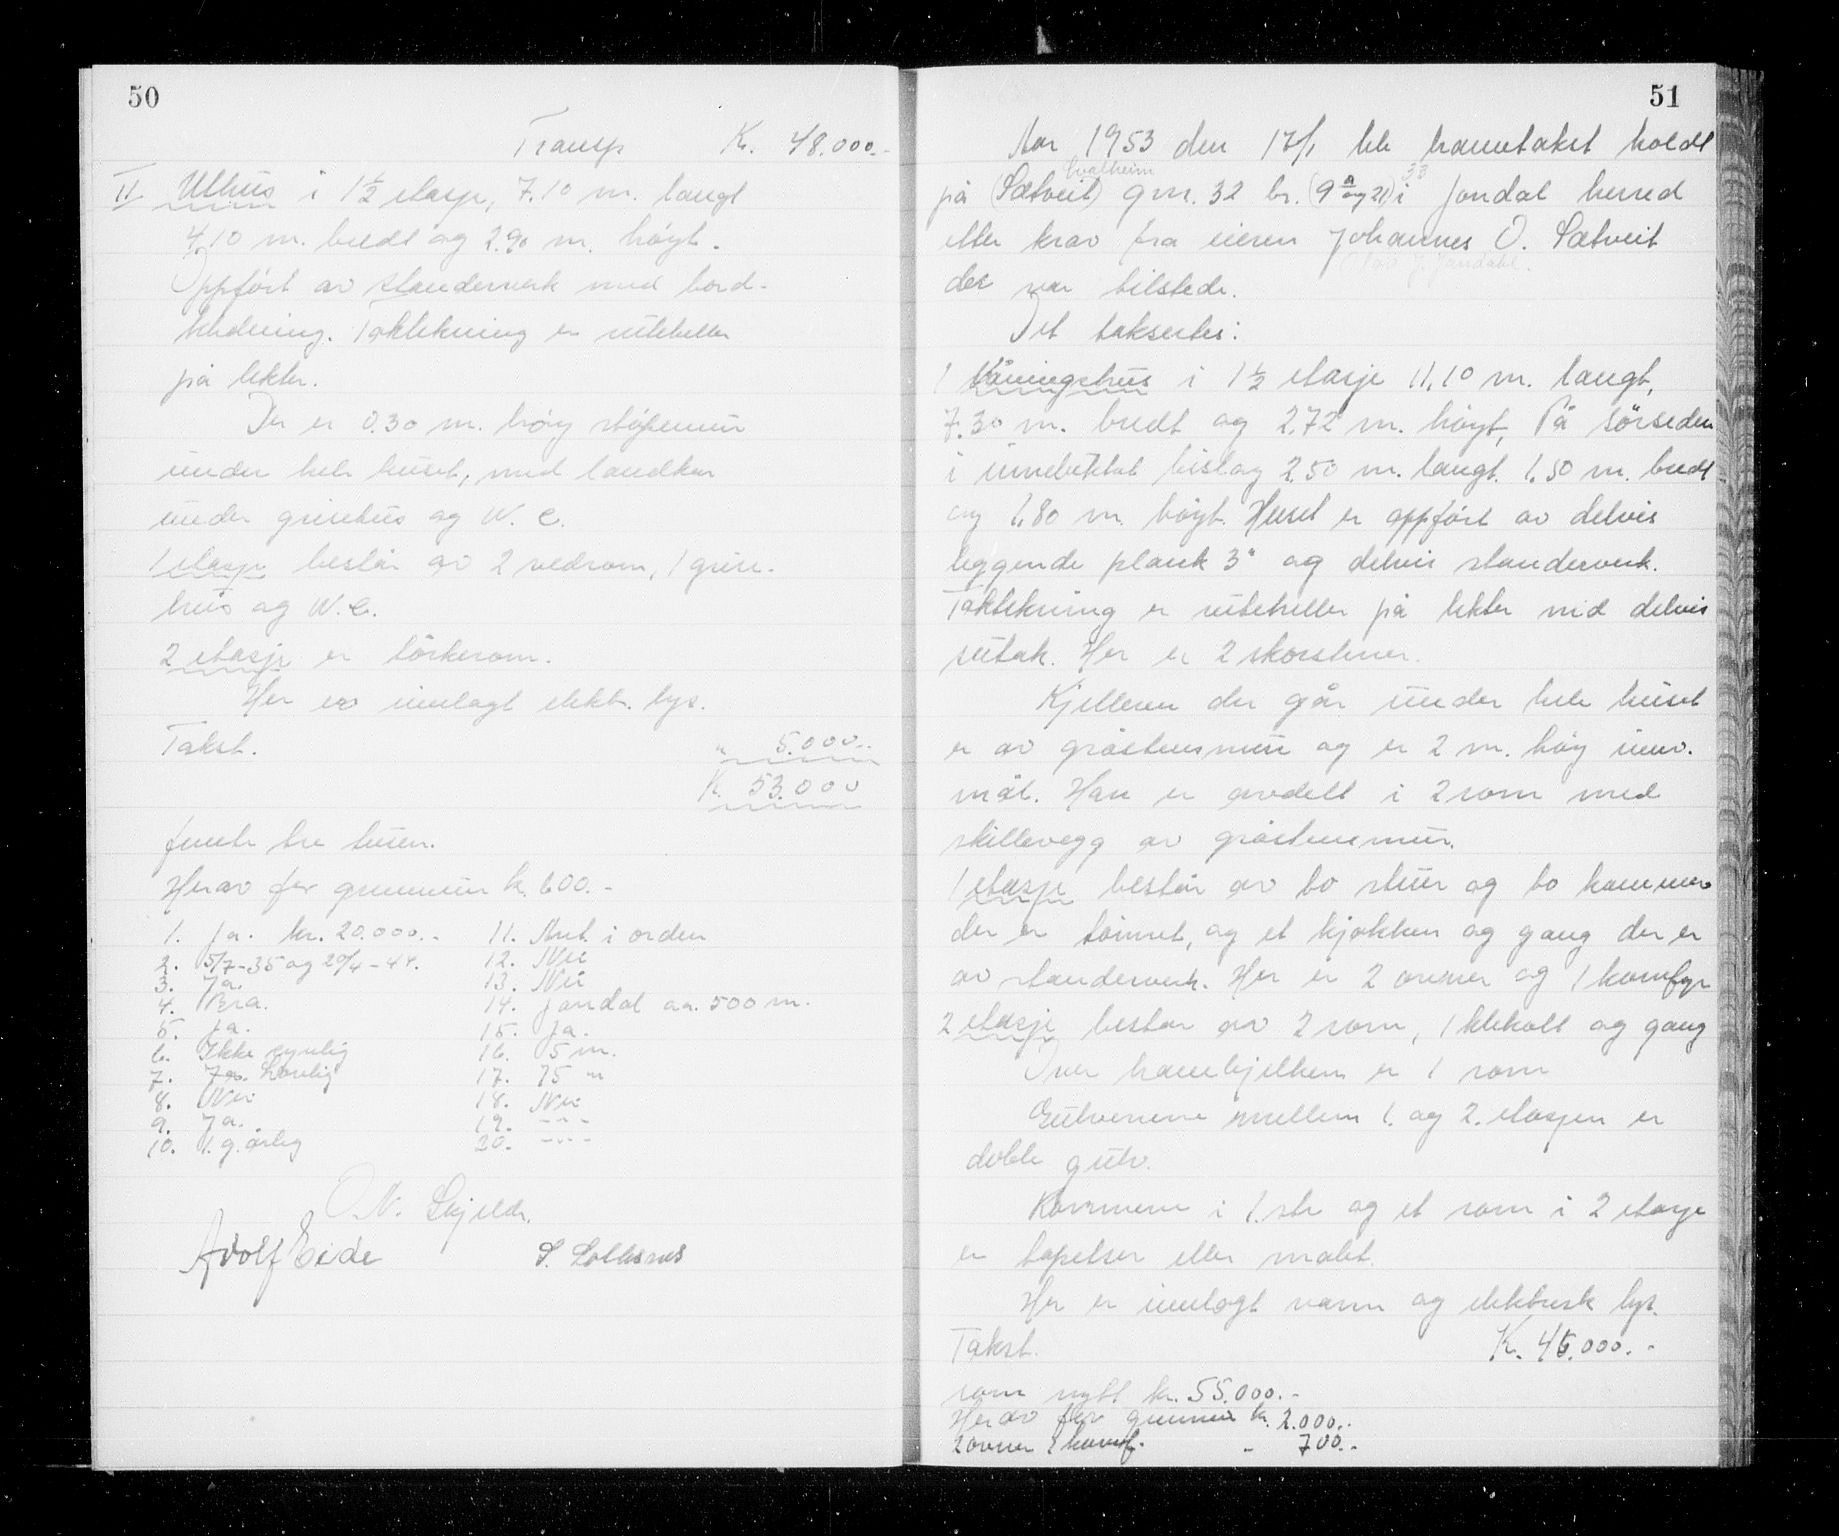 50
Transp K. 48.000.-
II Uthus i 1½ etasje, 7.10 m. langt
4.10 m. bredt og 2.90 m. høyt.
Oppført av standerverk med bord-
kledning. Taktekning er ruteheller
på lekter.
Der er 0.30 m. høy støpemur
under hele huset, med landkar
under grisehus og W.C.
1 etasje består av 2 vedrom, 1 grise-
hus og W.C.
2 etasje er törkerom.
Her er innlagt elekt. lys.
Takst. " 5.000.-
K. 53.000
femti tre tusen.
Herav for grunnmur k. 600.-
1. Ja. kr. 20.000.- 11. Ant. i orden
2. 5/7-35 og 20/4-44. 12. Nei
3. Ja. 13. Nei
4. Bra. 14. Jondal ca. 500 m.
5. Ja. 15. Ja.
6. Ikke synlig 16. 5 m.
7. Lovlig 17. 75 m
8. Nei 18. Nei
9. Ja. 19. ----
10. 1 g. årlig 20. ----
O.N. Skjeldr.
Adolf Eide S. Solesnes
51
Aar 1953 den 17/1 ble branntakst holdt
Lvalheim 33
på (Sætveit) gnr. 32 br. (9 a og 21) i Jondal herred
etter krav fra eieren Johannes O. Sætveit
Jondahl.
der var tilstede.
Det taksertes:
1 Våningshus i 1½ etasje 11,10 m. langt,
7.30 m. bredt og 2.72 m. høyt, På sörsiden
i innebygget bislag 2.50 m. langt. 1.50 m. bredt
og 1,80 m. høyt. Huset er oppført av delvis
liggende plank 3" og delvis standerverk.
Taktekning er ruteheller på lekter med delvis
sutak. Her er 2 skorstener.
Kjelleren der går under hele huset
er av gråstensmur og er 2 m. høy innv.
mål. Han er avdelt i 2 rom med
skillevegg av gråstensmur.
1 etasje består av to stuer og to kammer
der er tömret, og et kjøkken og gang der er
av standerverk. Her er 2 ovner og 1 komfyr
2 etasje består av 2 rom, 1 klekott og gang
Over hanebjelken er 1 rom
Gulvenene mellem 1. og 2. etasjen er
doble gulv.
Rommene i 1.ste og et rom i 2 etasje
er tapetser eller malet.
Her er innlagt vann og elektrisk lys.
Takst. K. 45.000.-
som nytt kr. 55.000.-
Herav for grunnmur k. 2.000.-
2 ovner 1 komf. - 700.-